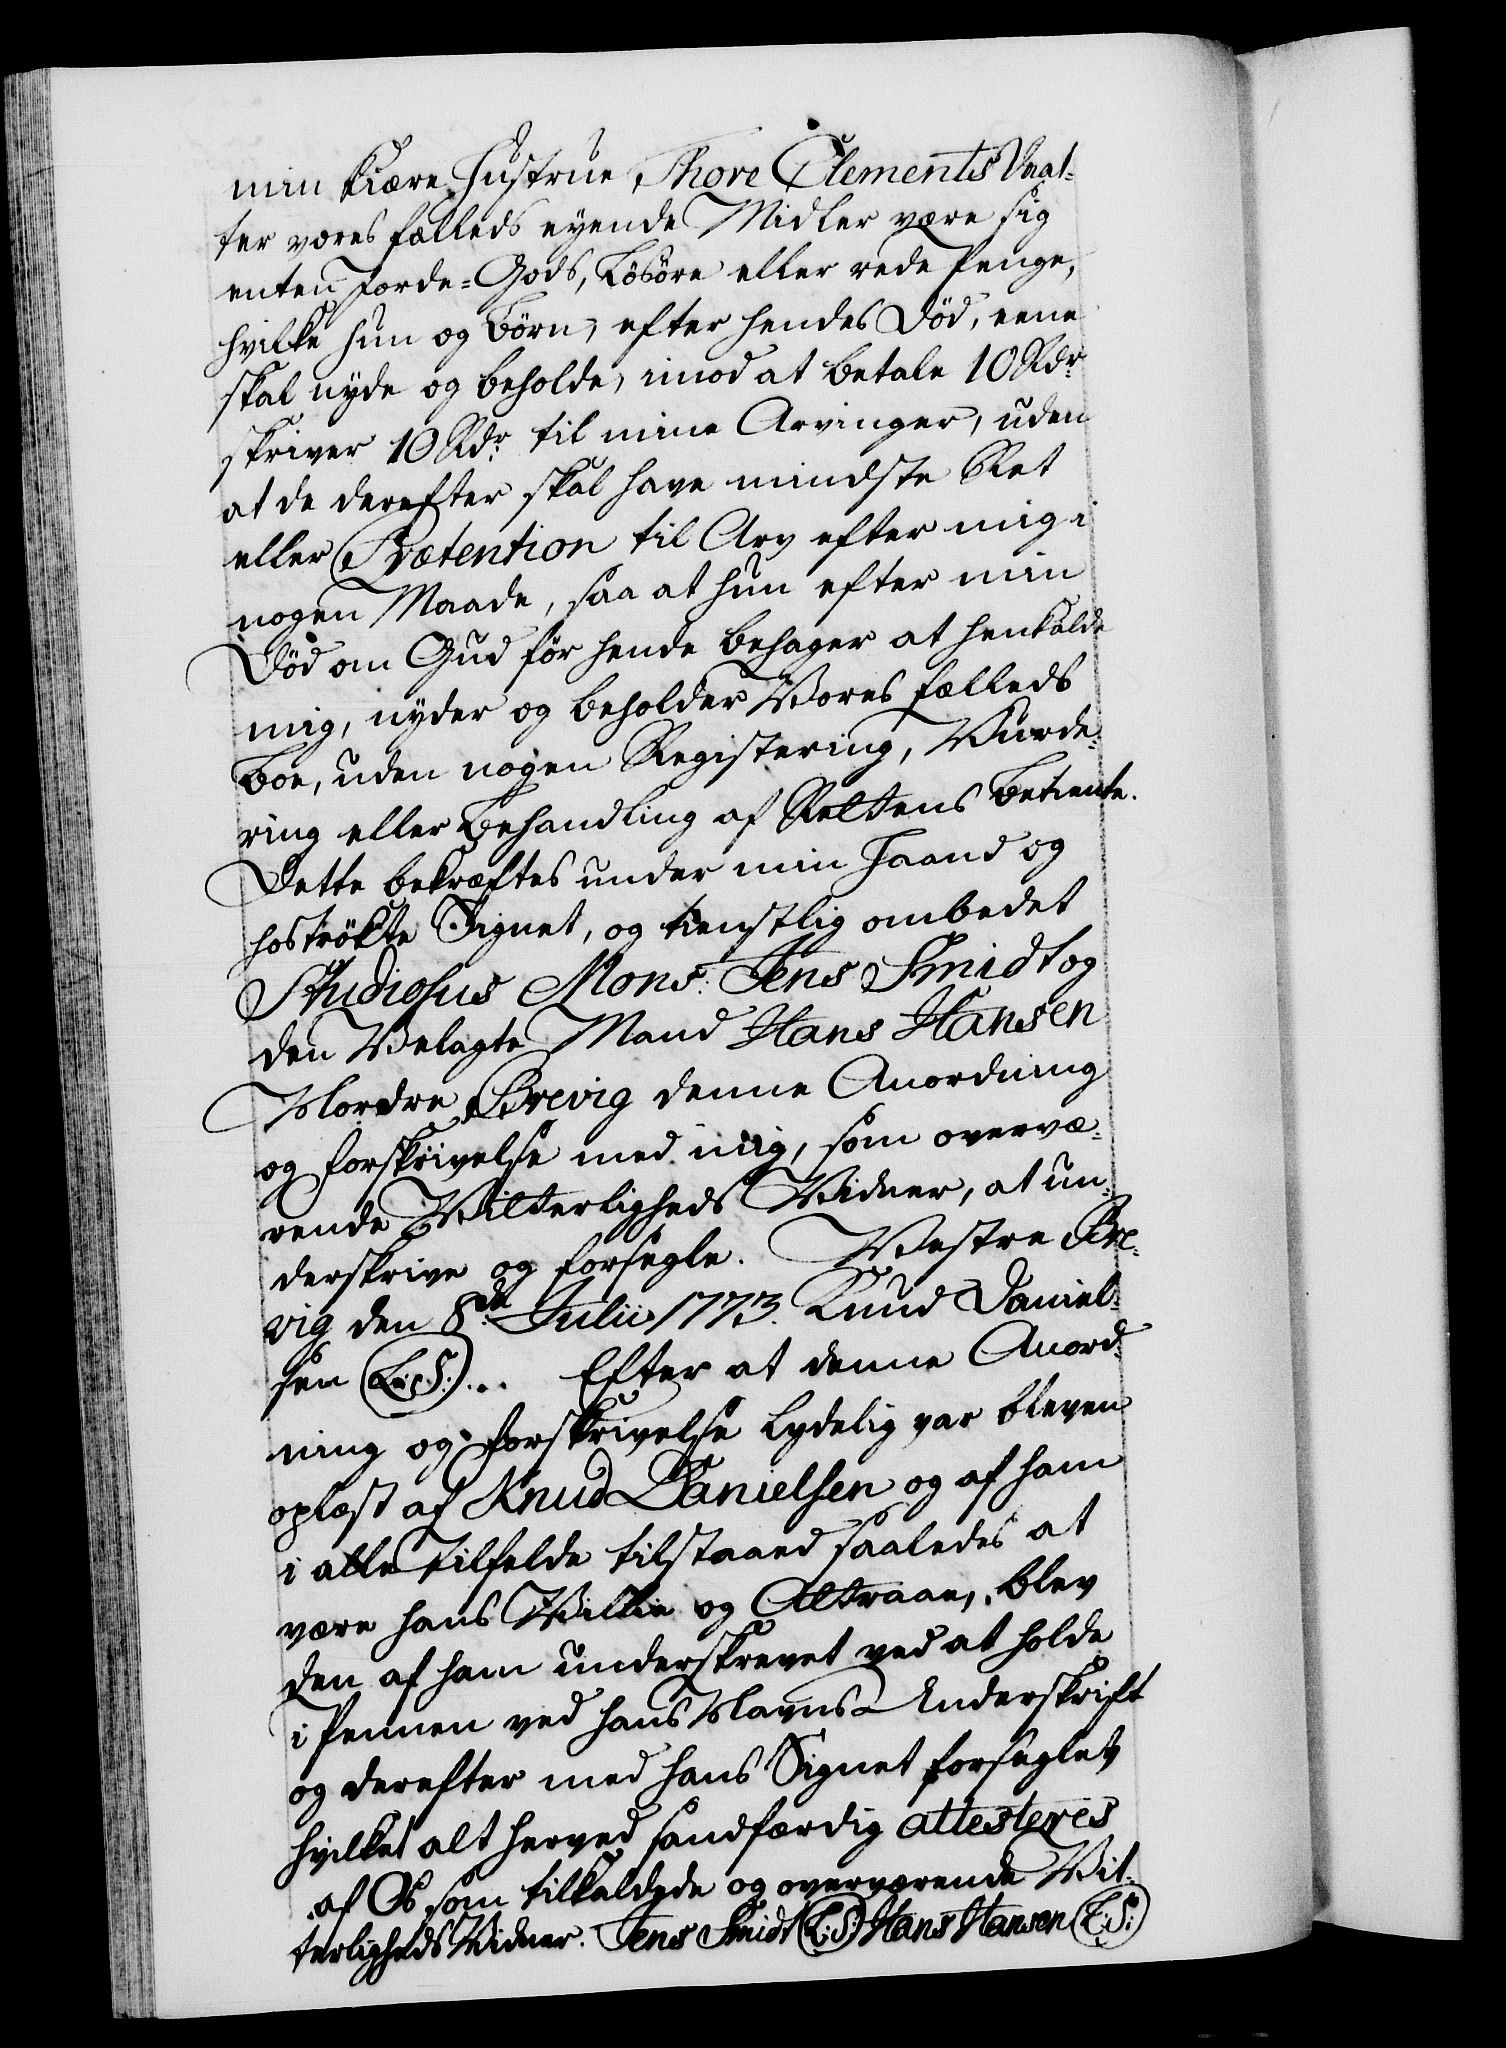 min kiære Hustrue Thore Clements Daat-
ter vores fælleds eyende Midler være sig
enten Jorde-Gods, Løsöre eller rede Penge,
hvilke hun og Börn, efter hendes Död, eene
skal nyde og beholde, imod at betale 10 Rdr
skriver 10 Rdr til mine Arvinger, uden
at de derefter skal have mindste Ret
eller Prætention til Arv efter mig i
nogen Maade, saa at hun efter min
Död om Gud för hende behager at henkalde
mig, nyder og beholder Vores fælleds
Boe, uden nogen Registering, Vurde-
ring eller Behandling af Rettens Betiente.
Dette bekræftes under min Haand og
hoströkte Signet, og tienstlig ombedet
Studiosus Mons: Jens Smidt og
den Velagte Mand Hans Hansen
Nordre Brevig denne Anordning
og forskrivelse med mig, som overvæ-
rende Vitterligheds Vidner, at un-
derskrive og forsegle. Vestre Bre-
vig den 8de Julii 1773. Knud Daniel-
sen (L:S:)... Efter at denne Anord-
ning og forskrivelse lydelig var bleven
oplæst af Knud Danielsen og af ham
i alle Tilfelde tilstaaed saaledes at
være hans Villie og Attraae, blev
den af ham underskrevet ved at holde
i Pennen ved hans Navns Underskrift
og derefter med hans Signet forseglet
hvilket alt herved sandfærdig attesteres
af Os som tilkaldede og overværende Vit-
terligheds Vidner. Jens Smidt (L:S:) Hans Hansen (L:S:)